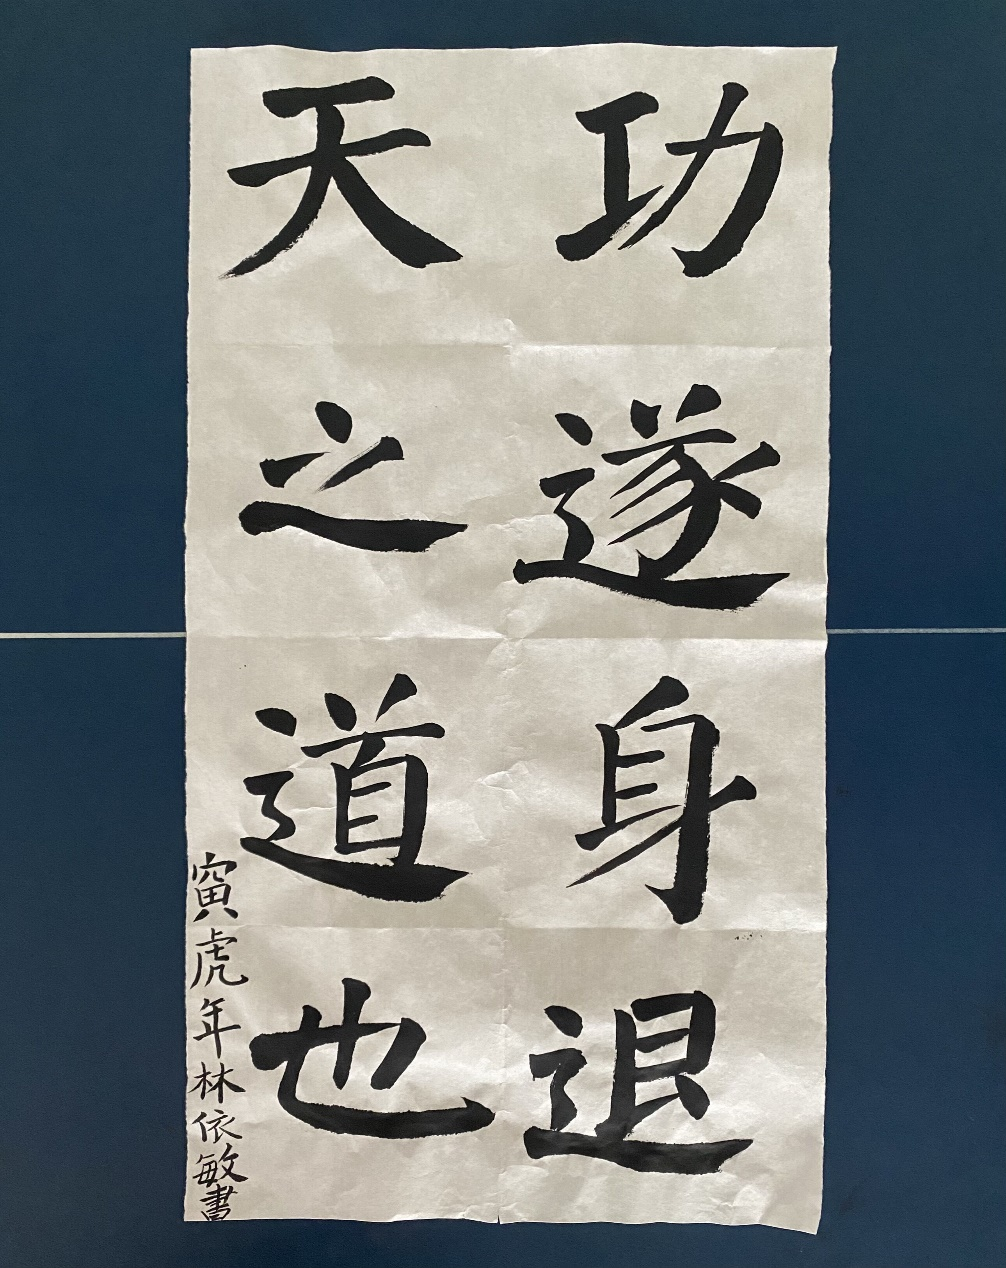 功遂身退
天之道也
寅虎年林依敏書